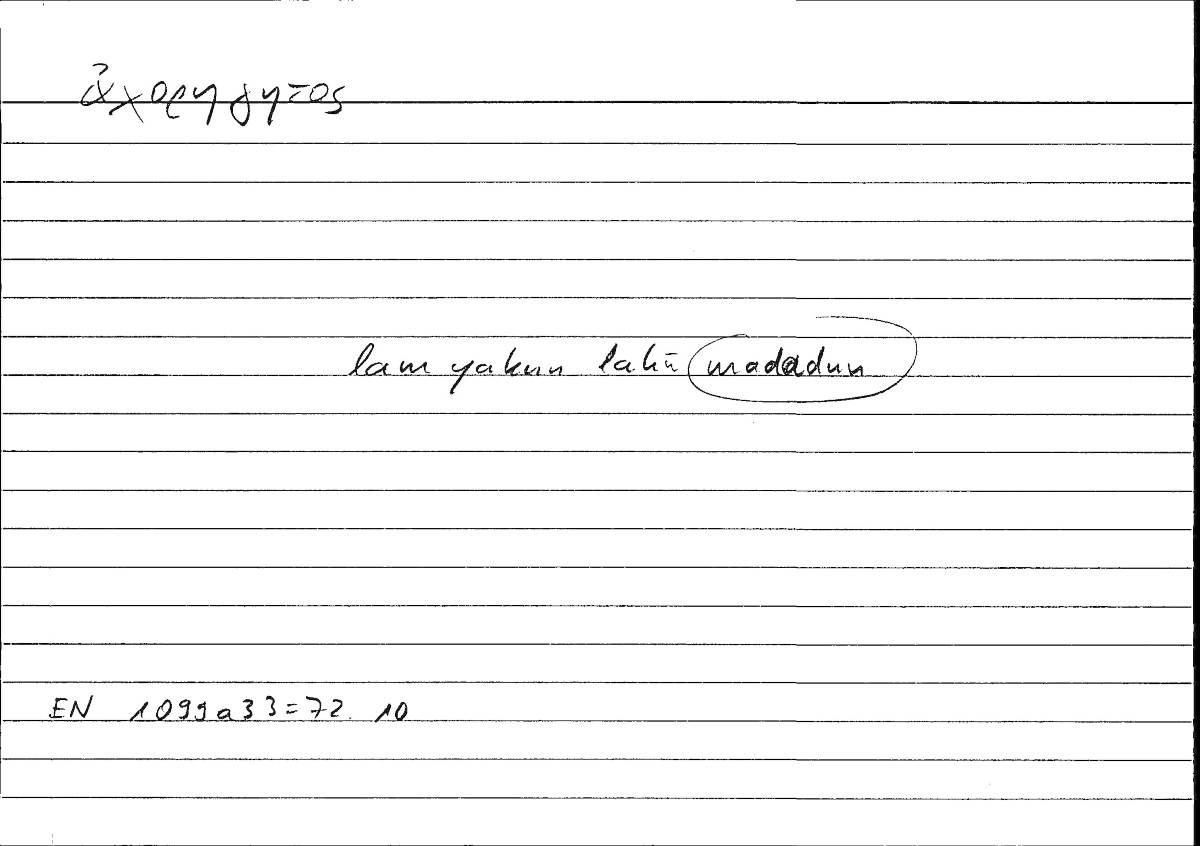 ἀχορήγητος
lam yakun lahū madadun
EN 1099a33=72.10